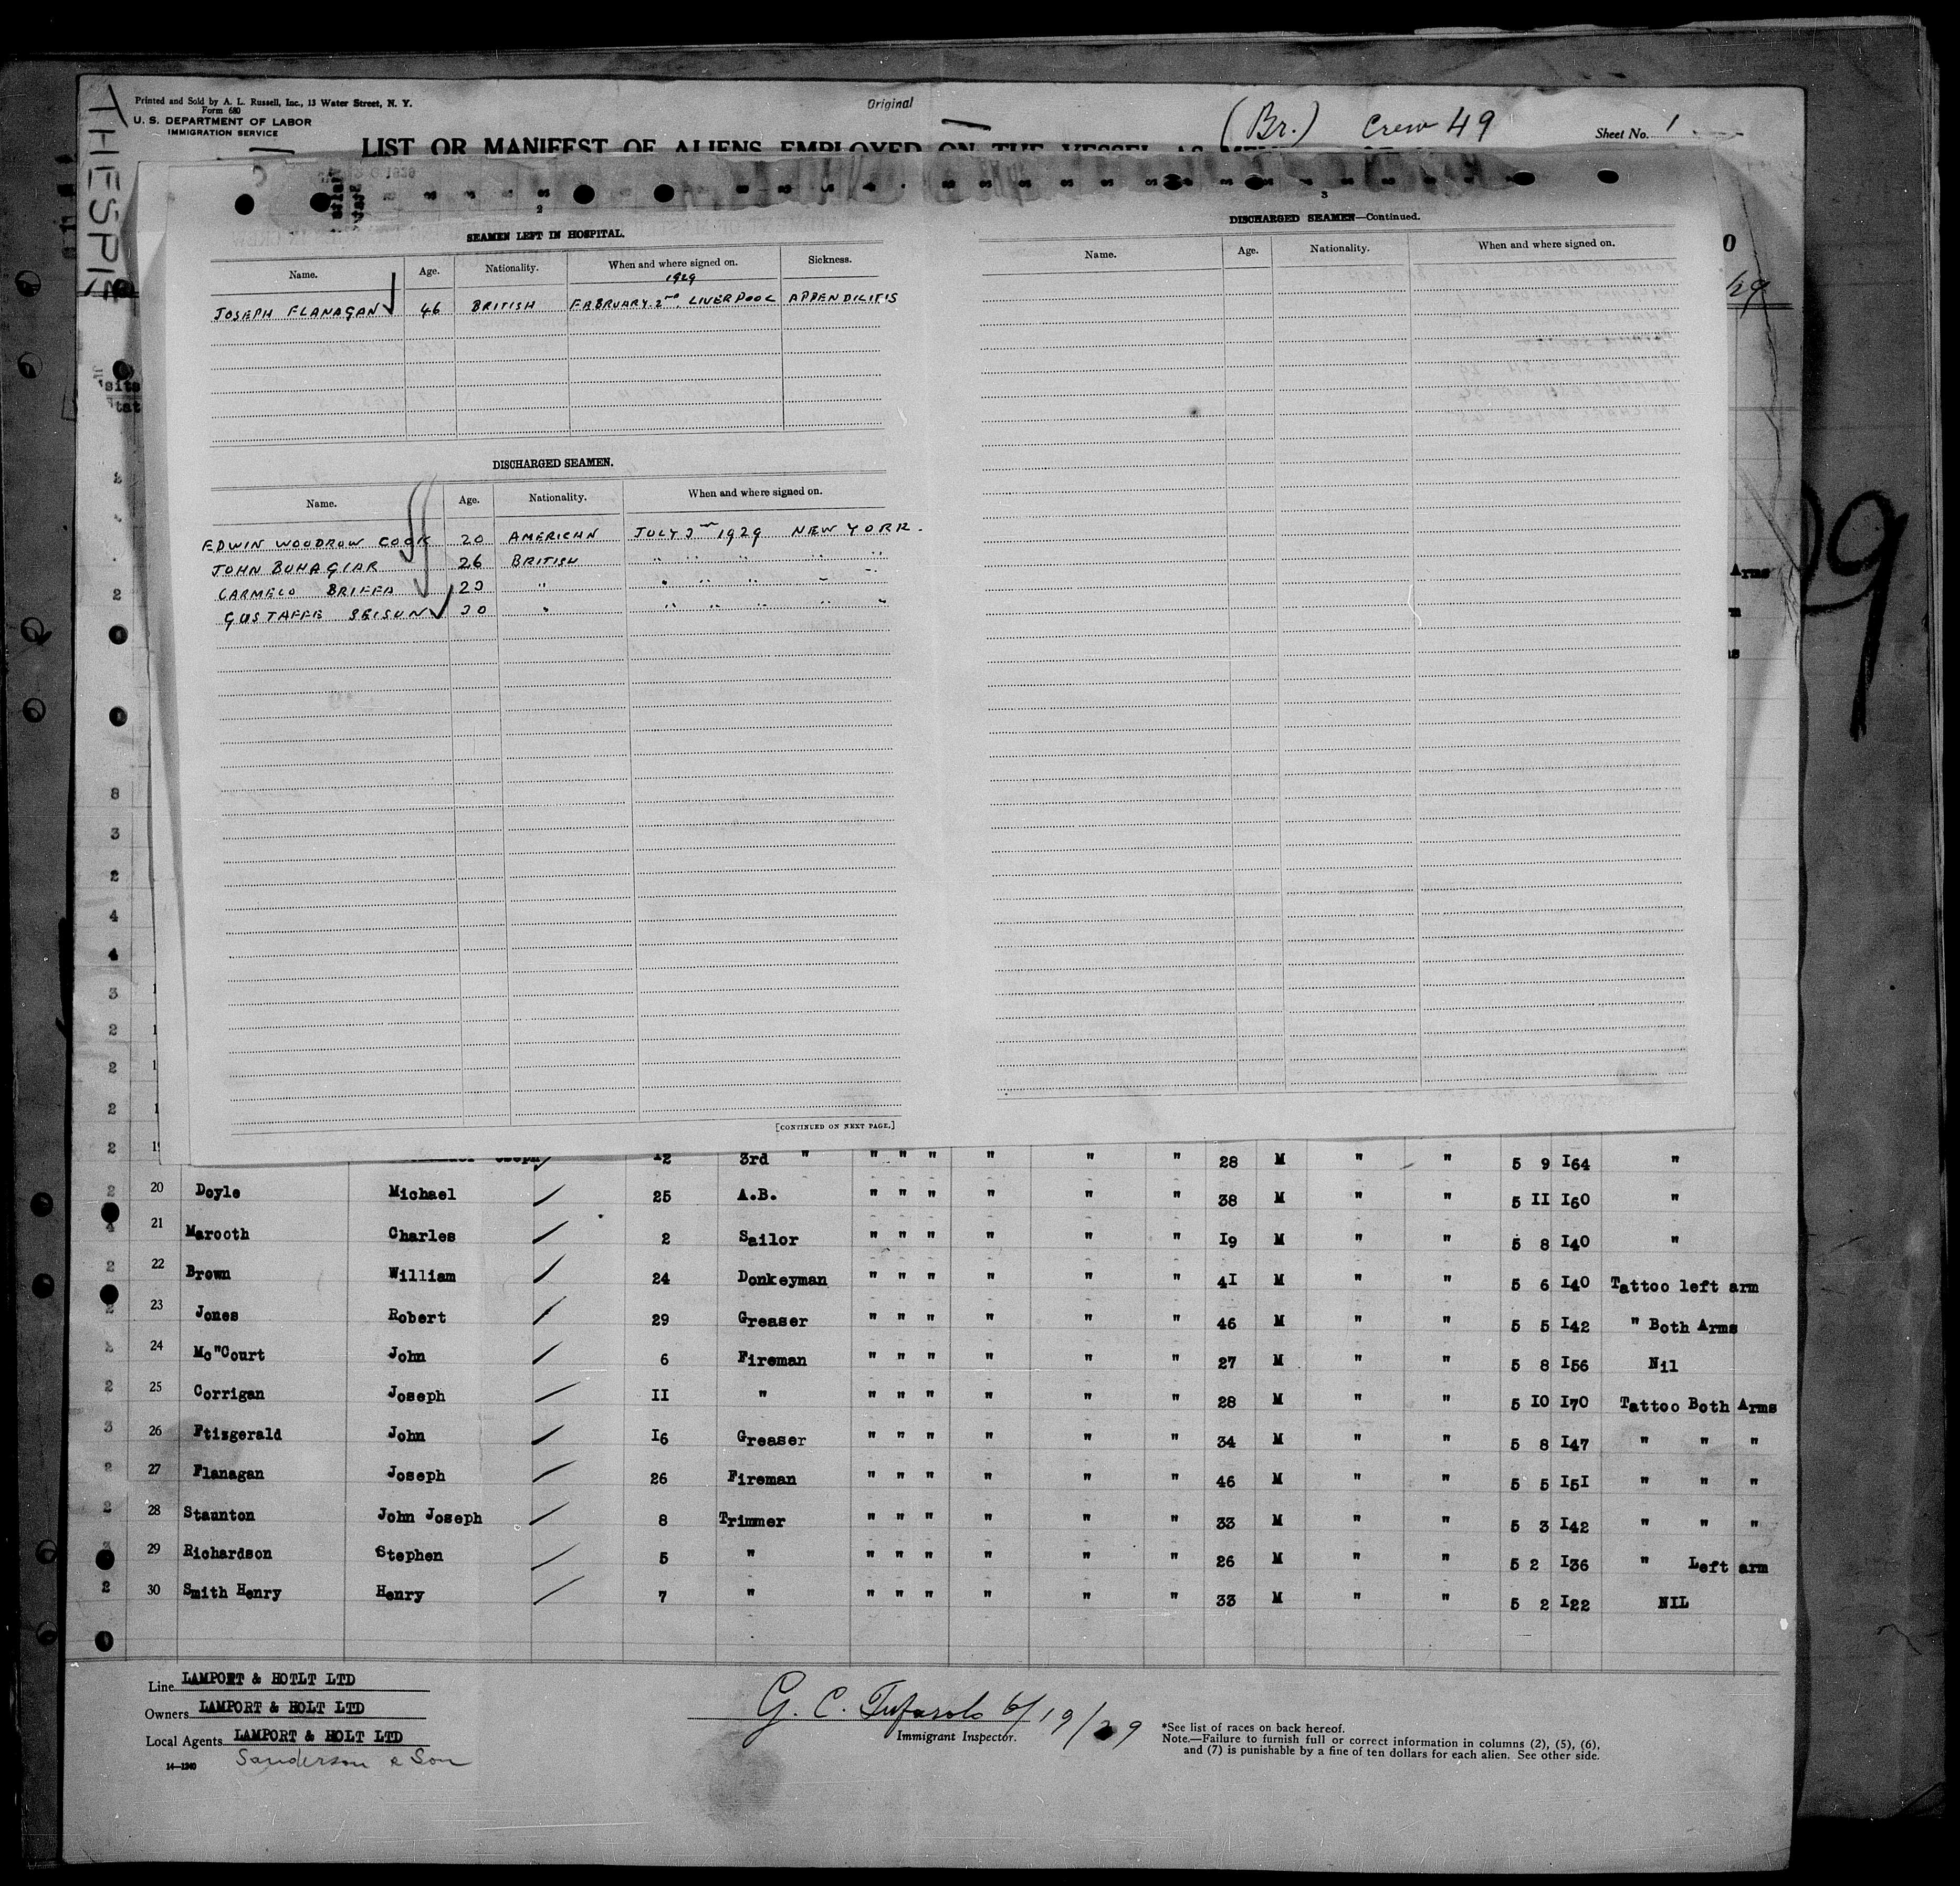 THESPIS
Printed and Sold by A. L. Russell, Inc., 13 Water Street, N. Y.
Form 680
U. S. DEPARTMENT OF LABOR
IMMIGRATION SERVICE
Original
(Br.) Crew 49
Sheet No. 1
LIST OR MANIFEST OF ALIENS EMPLOYED ON THE VESSEL AS
2
SEAMEN LEFT IN HOSPITAL.
Name. Age. Nationality. When and where signed on. Sickness.
1929
JOSEPH FLANAGAN 46 BRITISH FABRUARY 2nd LIVERPOOL APPENDILITIS
DISCHARGED SEAMEN.
Name. Age. Nationality. When and where signed on.
EDWIN WOODROW COOK 20 AMERICAN JULY 3rd 1929 NEW YORK.
JOHN BUHAGIAR 26 BRITISH " " " " "
CARMELO BRIFFA 23 " " " " " "
GUSTAFFE 30 " " " " " "
[CONTINUED ON NEXT PAGE.]
3
DISCHARGED SEAMEN—Continued.
Name. Age. Nationality. When and where signed on.
Arms
12 3rd " " " " " " " 28 M " " 5 9 I64 "
20 Doyle Michael 25 A.B. " " " " " " 38 M " " 5 II I60 "
21 Marooth Charles 2 Sailor " " " " " " I9 M " " 5 8 I40 "
22 Brown William 24 Donkeyman " " " " " " 4I M " " 5 6 I40 Tattoo left arm
23 Jones Robert 29 Greaser " " " " " " 46 M " " 5 5 I42 " Both Arms
24 Mc"Court John 6 Fireman " " " " " " 27 M " " 5 8 I56 Nil
25 Corrigan Joseph II " " " " " " " 28 M " " 5 IO I70 Tattoo Both Arms
26 Ftizgerald John I6 Greaser " " " " " " 34 M " " 5 8 I47 " " "
27 Flanagan Joseph 26 Fireman " " " " " " 46 M " " 5 5 I5I " " "
28 Staunton John Joseph 8 Trimmer " " " " " " 33 M " " 5 3 I42 " " "
29 Richardson Stephen 5 " " " " " " " 26 M " " 5 2 I36 " Left arm
30 Smith Henry Henry 7 " " " " " " " 33 M " " 5 2 I22 NIL
Line LAMPORT & HOTLT LTD
Owners LAMPORT & HOLT LTD
Local Agents LAMPORT & HOLT LTD
Sanderson & Son
14—1240
G. C. 6/19/29
Immigrant Inspector.
*See list of races on back hereof.
Note.—Failure to furnish full or correct information in columns (2), (5), (6),
and (7) is punishable by a fine of ten dollars for each alien. See other side.